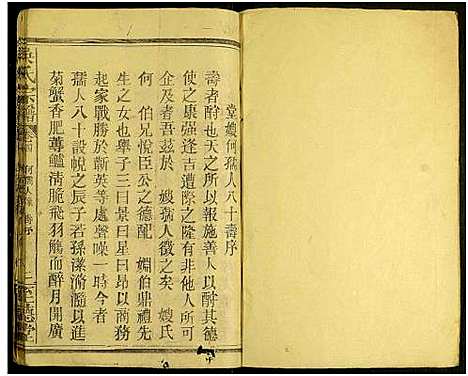 堂嫂何孺人八十壽序
壽者酧也天之所以報施善人以酧其德
使之康强逢吉遭際之隆有非他人所可
企及者吾玆於　嫂孺人徵之矣　嫂氏
何　伯兄悅臣公之德配　嫺伯鼎禮先
生之女也舉子三曰景曰星曰昂以商務
起家戰勝於蘄英等處聲噪一時今者
孺人八十設帨之辰子若孫潔滫瀡以進
菊蟹香肥蓴鱸清脆飛羽觴而醉月開廣
氏宗譜
至德堂